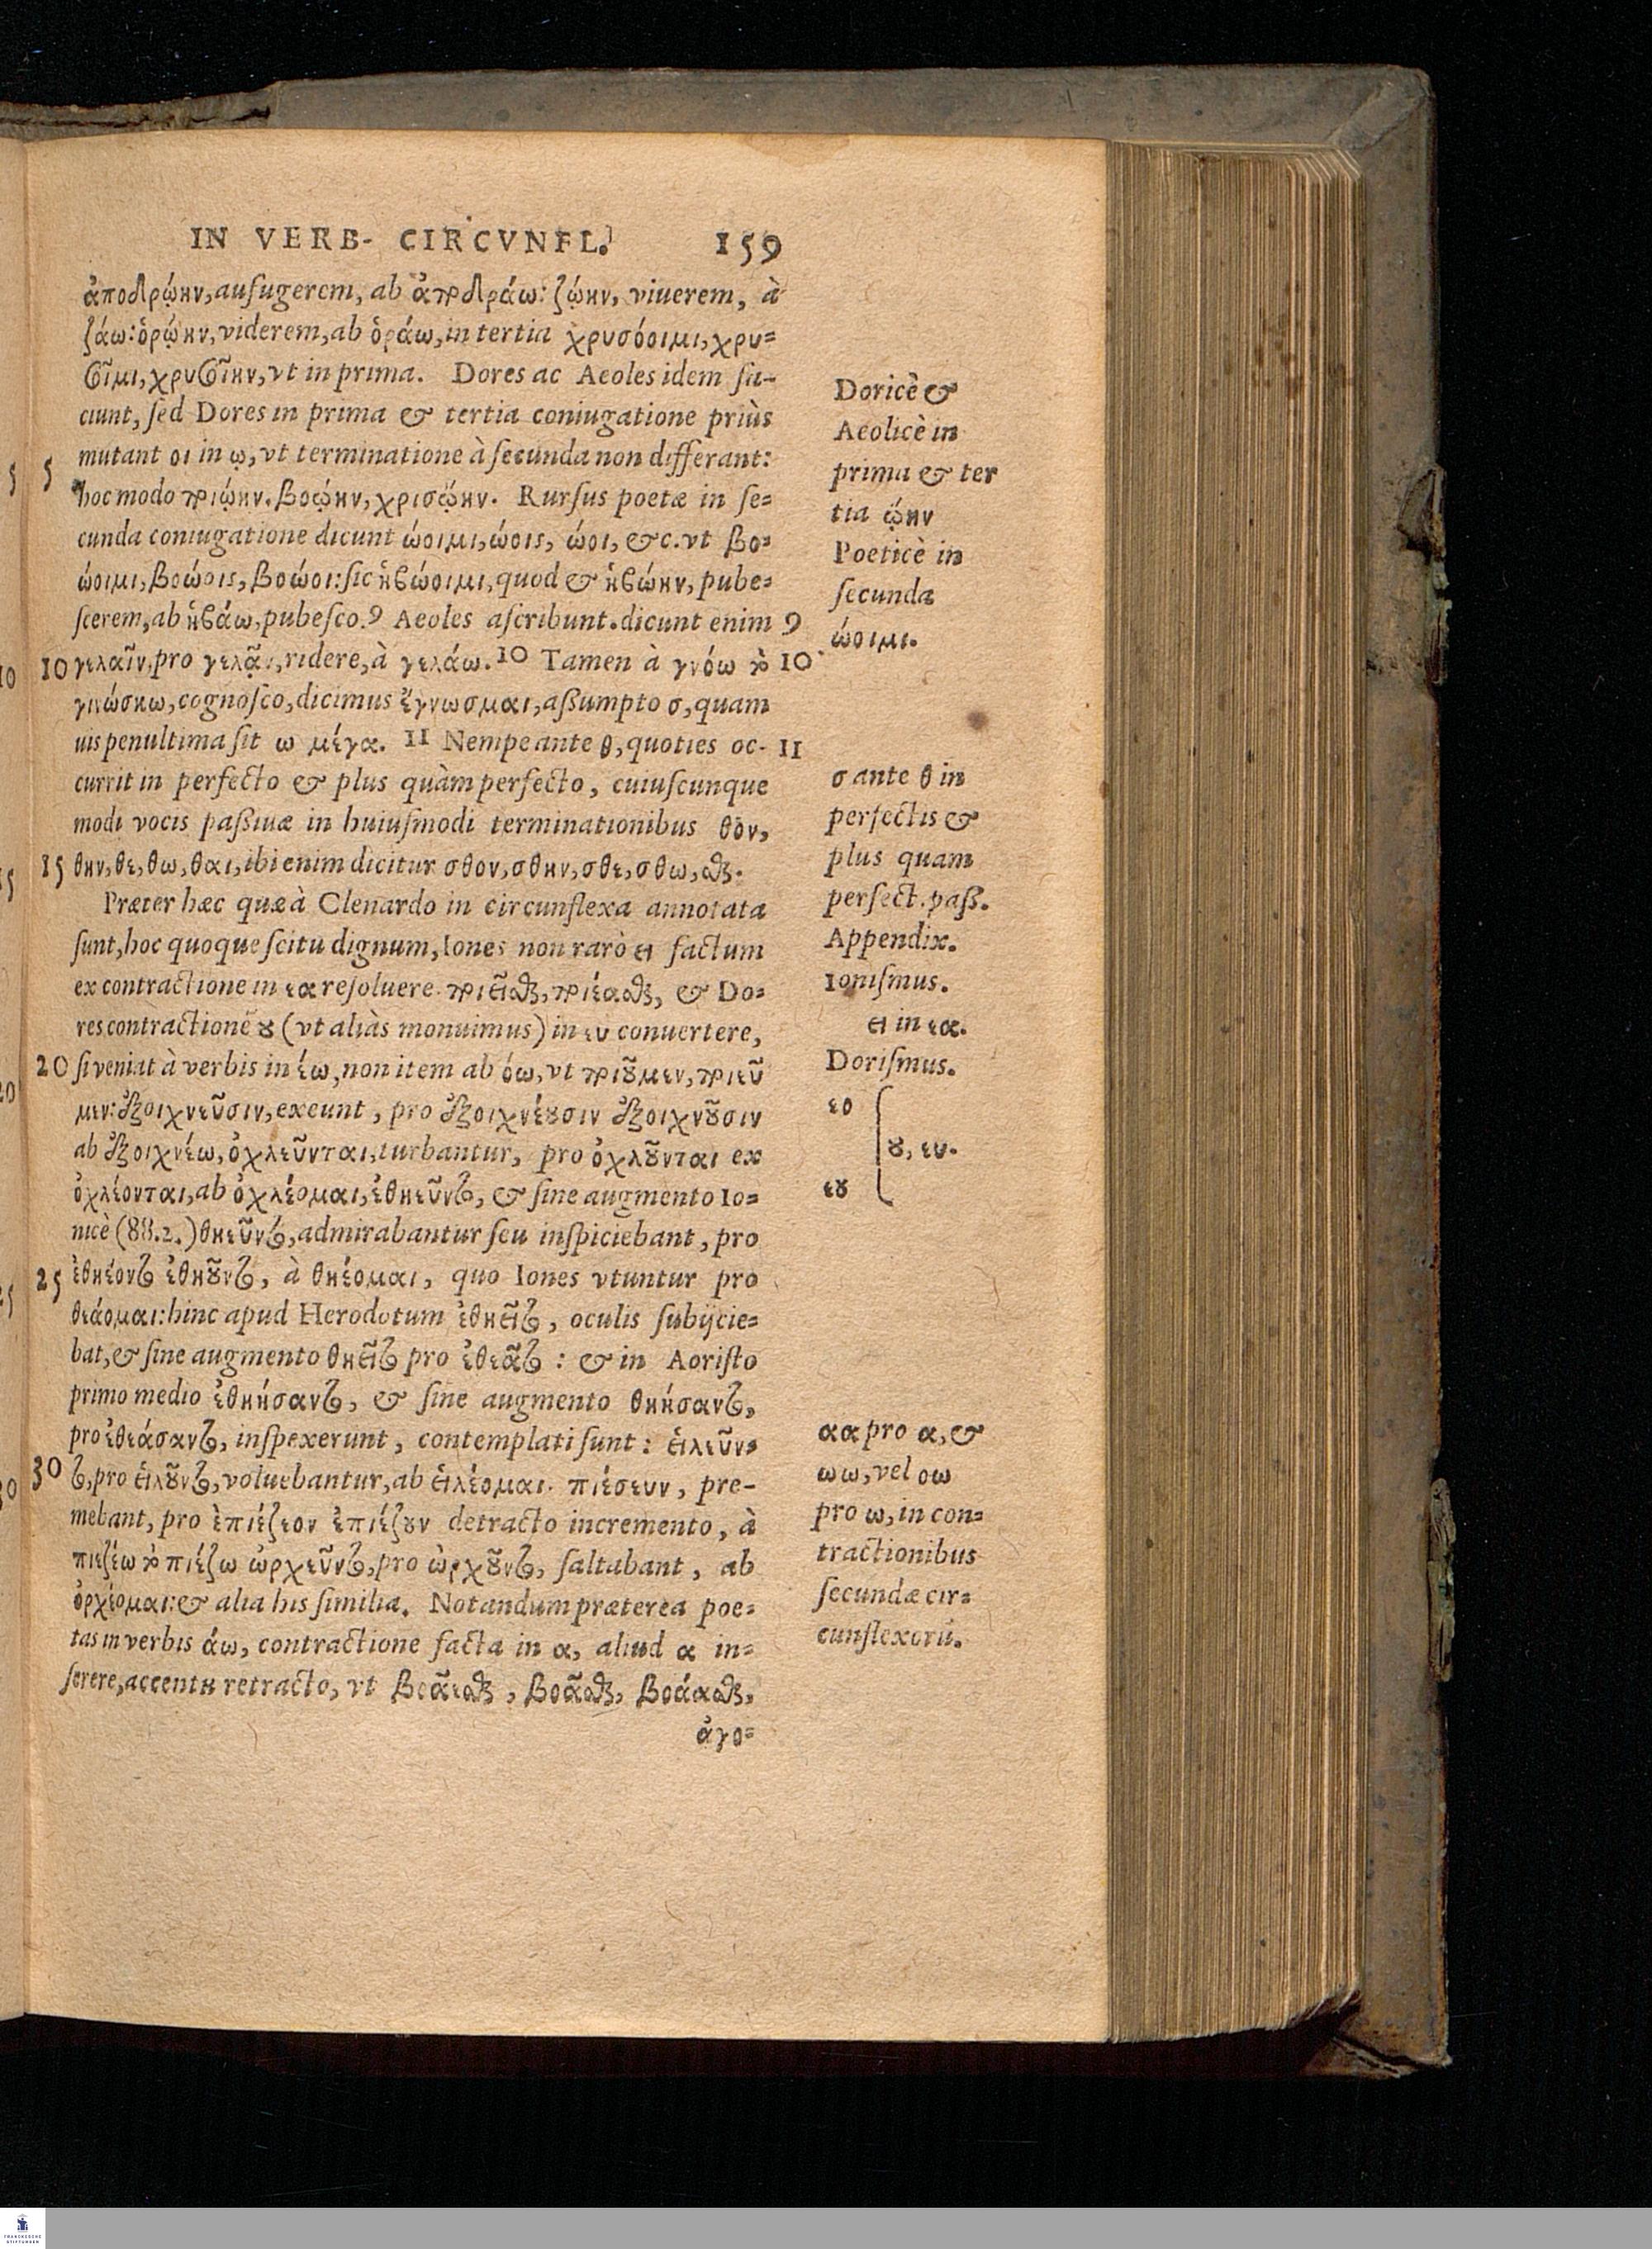 IN VERB- CIRCVNFL. 159
ἀποδρῴην, aufugerem, ab ἀποδράω: ζῴην, viuerem, à
ζάω: ὁρῴην, viderem, ab ὁράω, in tertia χρυσόοιμι, χρυ-
σοῖμι, χρυσοῖην, vt in prima. Dores ac Aeoles idem fa-
ciunt, sed Dores in prima & tertia coniugatione priùs
mutant οι in ῳ, vt terminatione à secunda non differant:
5
hoc modo τριῴην. βοῴην, χρισῴην. Rursus poetæ in se-
cunda coniugatione dicunt ώοιμι, ώοις, ώοι, &c. vt βο-
ώοιμι, βοώοις, βοώοι: sic ἡβώοιμι, quod & ἡβώην, pube-
scerem, ab ἡβάω, pubesco. 9 Aeoles ascribunt. dicunt enim 9
10 γελαῖν, pro γελᾷν, ridere, à γελάω. 10 Tamen à γνόω τὸ 10
γινώσκω, cognosco, dicimus ἔγνωσμαι, assumpto σ, quam
uis penultima sit ω μέγα. 11 Nempe ante θ, quoties oc- 11
currit in perfecto & plus quàm perfecto, cuiuscunque
modi vocis passiuæ in huiusmodi terminationibus θον,
15 θην, θε, θω, θαι, ibi enim dicitur σθον, σθην, σθε, σθω, σθαι.
Præter hæc quæ à Clenardo in circunflexa annotata
sunt, hoc quoque scitu dignum, Iones non rarò ει factum
ex contractione in εα resoluere. τριεῖσθαι, τριέασθαι, & Do-
res contractionē ȣ (vt aliàs monuimus) in ευ conuertere,
20 si veniat à verbis in έω, non item ab όω, vt τριȣ͂μεν, τριεῦ
μεν: ἐξοιχνεῦσιν, exeunt, pro ἐξοιχνέȣσιν ἐξοιχνȣ͂σιν
ab ἐξοιχνέω, ὀχλεῦνται, turbantur, pro ὀχλȣ͂νται ex
ὀχλέονται, ab ὀχλέομαι, ἐθηεῦντο, & sine augmento Io-
nicè (88.2.) θηεῦντο, admirabantur seu inspiciebant, pro
25 ἐθηέοντο ἐθηȣ͂ντο, à θηέομαι, quo Iones vtuntur pro
θεάομαι: hinc apud Herodotum ἐθηεῖτο, oculis subijcie-
bat, & sine augmento θηεῖτο pro ἐθεᾶτο: & in Aoristo
primo medio ἐθηήσαντο, & sine augmento θηήσαντο,
pro ἐθεάσαντο, inspexerunt, contemplati sunt: εἱλεῦν-
30 το, pro εἱλȣ͂ντο, voluebantur, ab εἱλέομαι. πιέσευν, pre-
mebant, pro ἐπιέζεον ἐπιέζȣν detracto incremento, à
πιεζέω τὸ πιέζω ὠρχεῦντο, pro ὠρχȣ͂ντο, saltabant, ab
ὀρχέομαι: & alia his similia. Notandum præterea poe-
tas in verbis άω, contractione facta in α, aliud α in-
serere, accentu retracto, vt βοᾶεσθαι, βοᾶσθαι, βοάασθαι,
ἀγο-
Doricè &
Aeolicè in
prima & ter
tia ῴην
Poeticè in
secunda
ώοιμι.
σ ante θ in
perfectis &
plus quam
perfect. pass.
Appendix.
Ionismus.
ει in εα.
Dorismus.
εο
ȣ, ευ.
εȣ
αα pro α, &
ωω, vel οω
pro ω, in con-
tractionibus
secundæ cir-
cunflexorū.
FRANCKESCHE
STIFTUNGEN